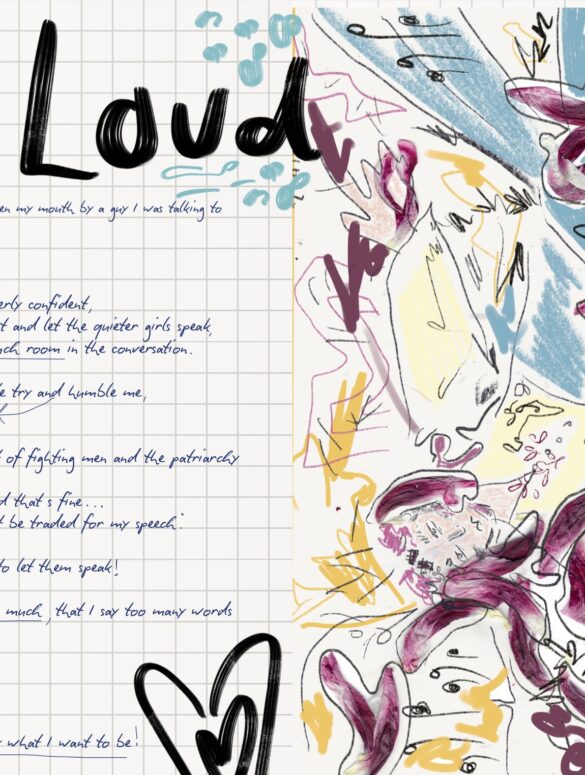 Loud
en my mouth by a guy I was talking to
erly confident,
t and let the quieter girls speak,
ch room in the conversation.
e try and humble me,
t of fighting men and the patriarchy
d that's fine...
t be traded for my speech
to let them speak!
much, that I say too many words
what I want to be!